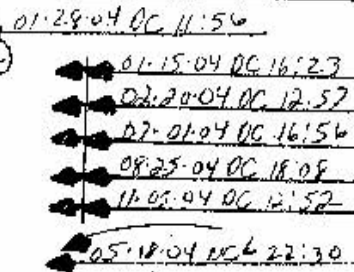 01·28·04 DC 11:56
01·15·04 DC 16:23
02·20·04 DC 12:57
07·01·04 DC 16:56
08·25·04 DC 18:08
11·02·04 DC 12:52
05·18·04 22:30